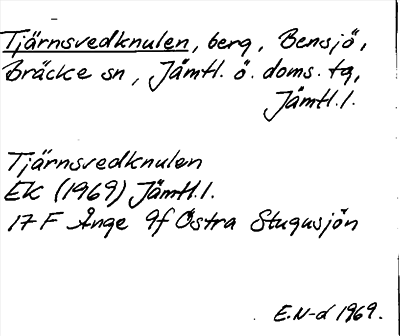 Tjärnsvedknulen, berg, Bensjö,
Bräcke sn, Jämtl. ö. doms. tg,
Jämtl. l.
Tjärnsvedknulen
EK (1969) Jämtl. l.
17 F Ånge 9f Östra Stugusjön
E. N-d 1969.